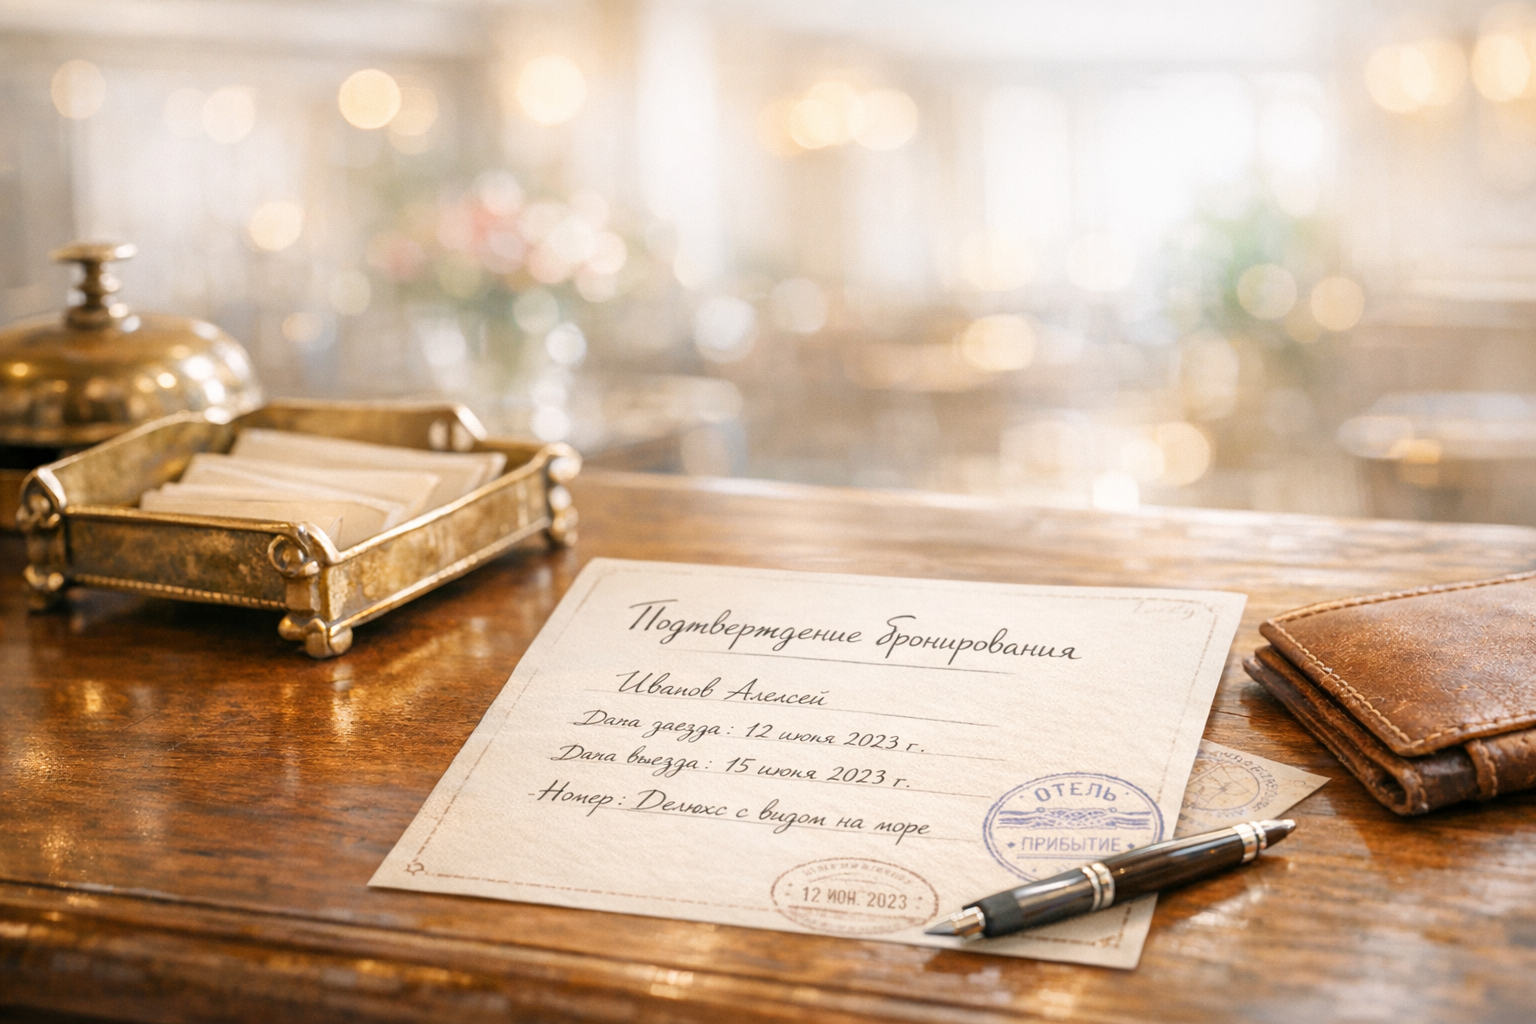 Подтверждение бронирования
Иванов Алексей
Дата заезда: 12 июня 2023 г.
Дата выезда: 15 июня 2023 г.
Номер: Делюкс с видом на море
ОТЕЛЬ
ПРИБЫТИЕ
12 ИЮН. 2023